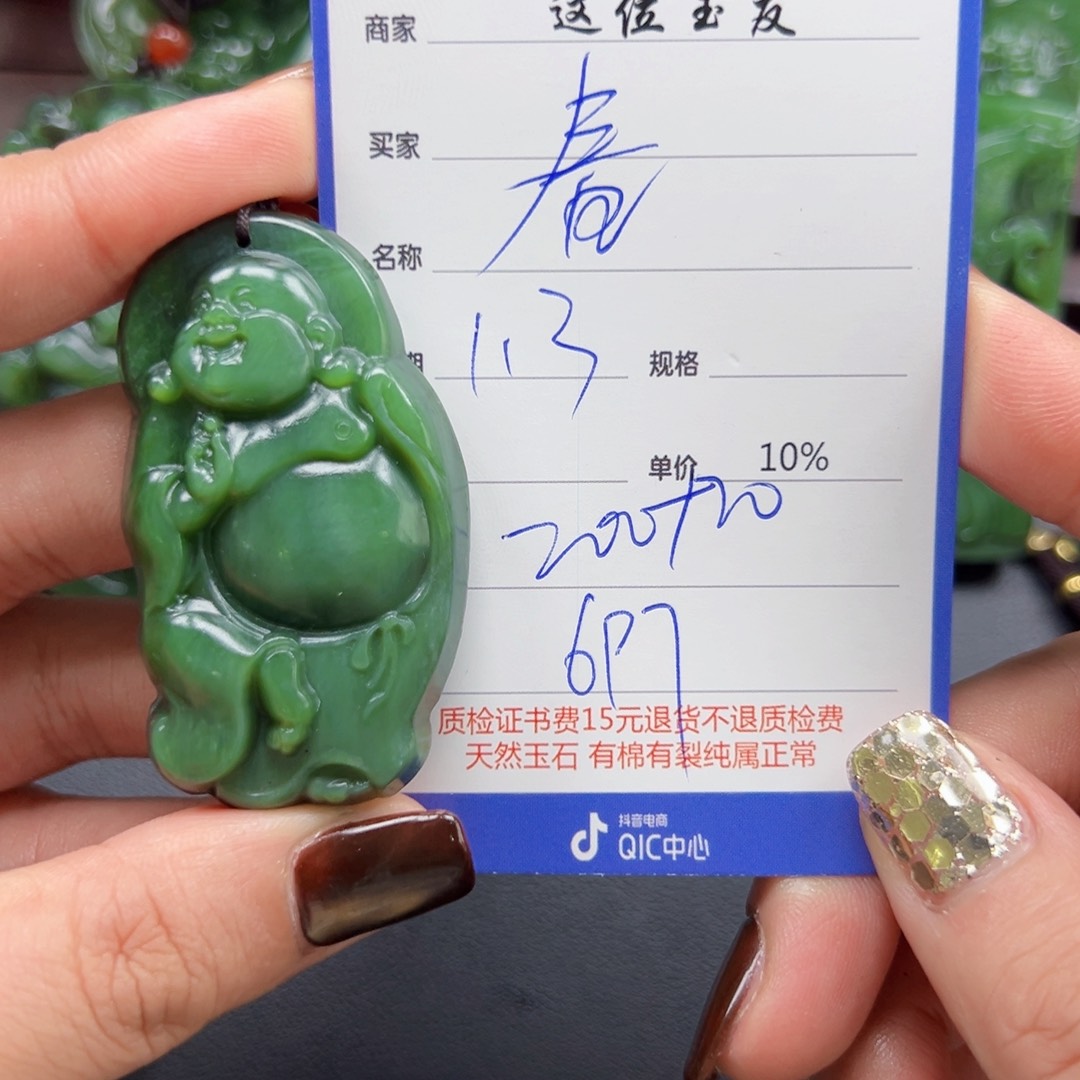 商家 这位玉友
买家 春
名称
期 11.3 规格
单价 10%
200+20
质检证书费15元退货不退质检费
天然玉石 有棉有裂纯属正常
抖音电商
QIC中心